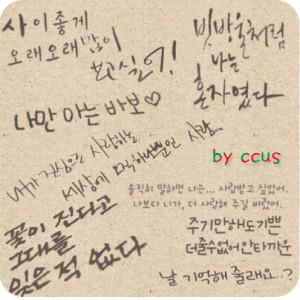 사이좋게
오래오래 많이
보고싶어!
빗방울처럼
나는
혼자였다
나만 아는 바보♡
내가 사랑하는
세상에
사람..
by ccus
솔직히 말하면 나는... 사랑받고 싶었어.
나보다 니가, 더 사랑해 주길 바랬어.
꽃이 진다고
그대를
잊은 적 없다
주기만해도기쁜
더줄수없어안타까운
날 기억해 줄래요..?